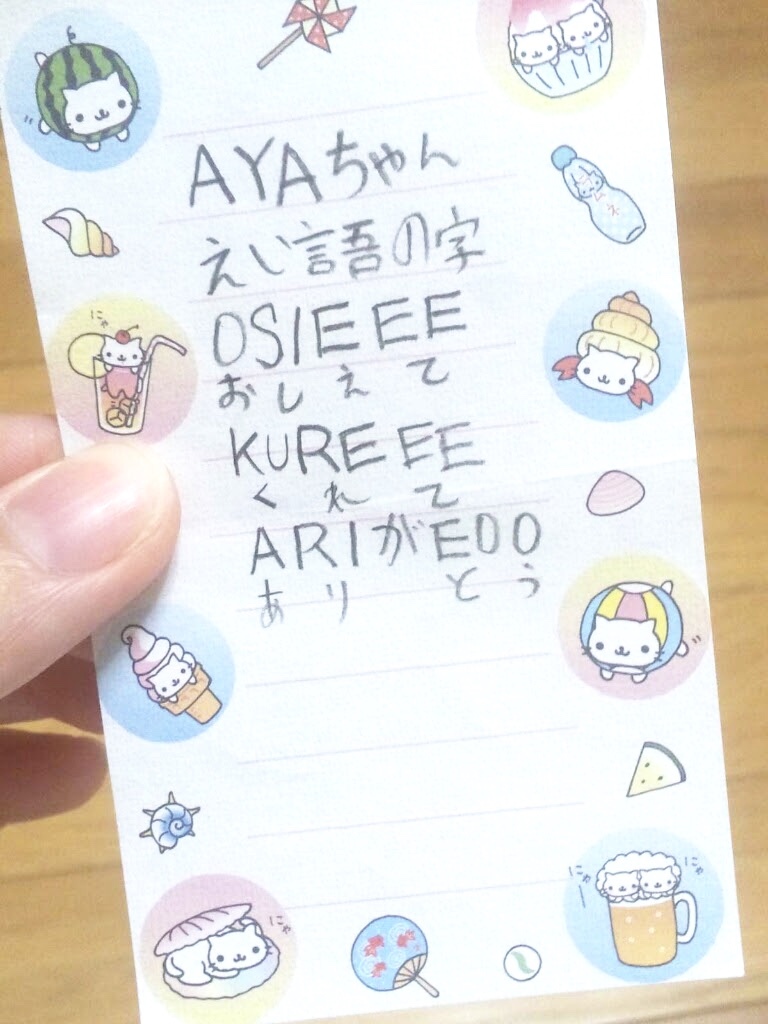 にゃ
AYAちゃん
えい語の字
OSIEEE
おしえて
KUREEE
くれて
ARIがEOO
ありとう
にゃ
にゃ
にゃ